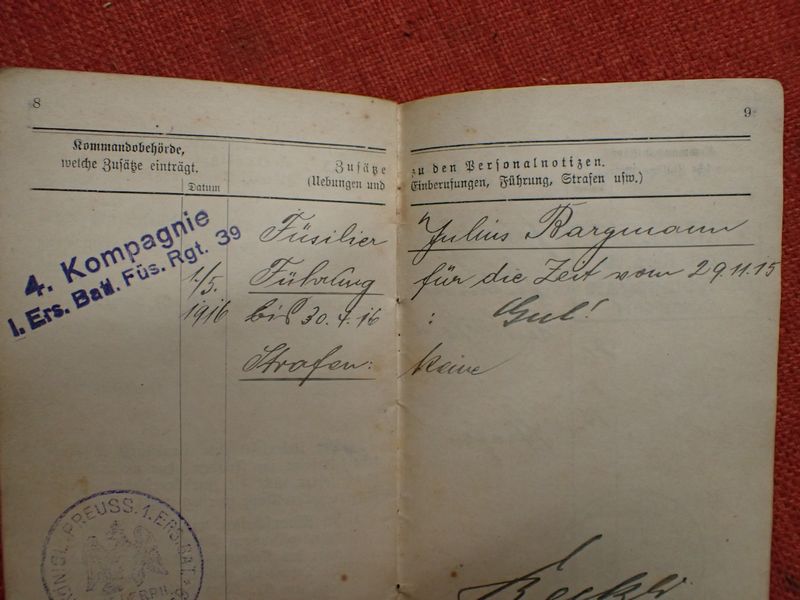 8
9
Kommandobehörde,
welche Zusätze einträgt.
Datum
Zusätze zu den Personalnotizen.
(Uebungen und Einberufungen, Führung, Strafen usw.)
4. Kompagnie
I. Ers. Batl. Füs. Rgt. 39
Füsilier Julius Bargmann
1/5. Führung für die Zeit vom 29.11.15
1916 bis 30.4.16 : Gut!
Strafen: keine
KÖNIGL. PREUSS. 1. ERS. BAT.